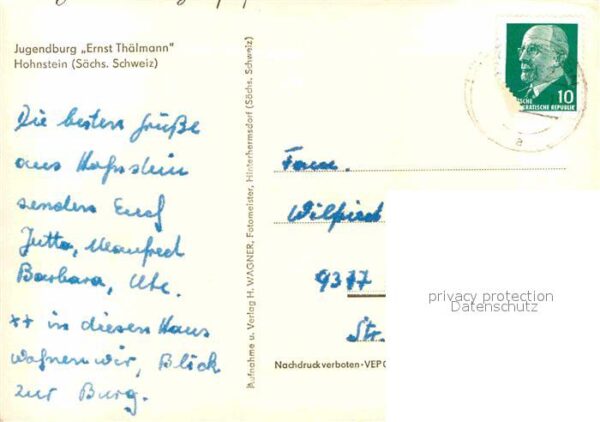 Jugendburg „Ernst Thälmann"
Hohnstein (Sächs. Schweiz)
Die besten Grüße
aus Hohnstein
senden Euch
Jutta, Manfred
Barbara, Ute.
++ in diesem Haus
wohnen wir, Blick
zur Burg.
Aufnahme u. Verlag H. WAGNER, Fotomeister, Hinterhermsdorf (Sächs. Schweiz)
10
DEMOKRATISCHE REPUBLIK
Fam.
9377
Str.
privacy protection
Datenschutz
Nachdruck verboten · VEP